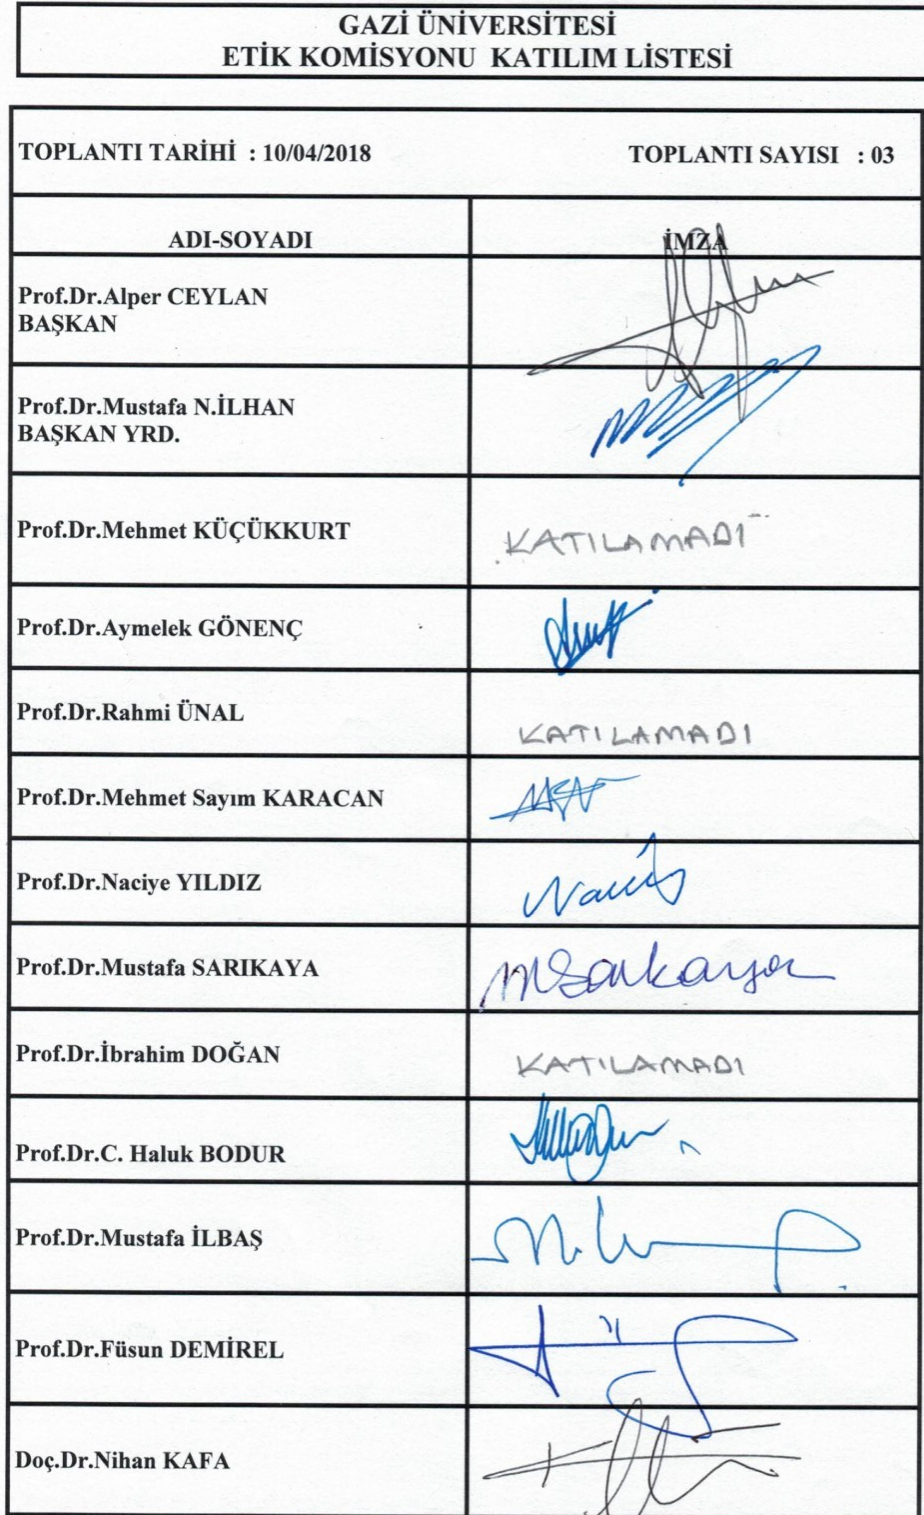 GAZİ ÜNİVERSİTESİ
ETİK KOMİSYONU KATILIM LİSTESİ
TOPLANTI TARİHİ : 10/04/2018 TOPLANTI SAYISI : 03
ADI-SOYADI İMZA
Prof.Dr.Alper CEYLAN
BAŞKAN
Prof.Dr.Mustafa N.İLHAN
BAŞKAN YRD.
Prof.Dr.Mehmet KÜÇÜKKURT KATILAMADI
Prof.Dr.Aymelek GÖNENÇ
Prof.Dr.Rahmi ÜNAL KATILAMADI
Prof.Dr.Mehmet Sayım KARACAN
Prof.Dr.Naciye YILDIZ
Prof.Dr.Mustafa SARIKAYA MSarıkaya
Prof.Dr.İbrahim DOĞAN KATILAMADI
Prof.Dr.C. Haluk BODUR
Prof.Dr.Mustafa İLBAŞ
Prof.Dr.Füsun DEMİREL
Doç.Dr.Nihan KAFA